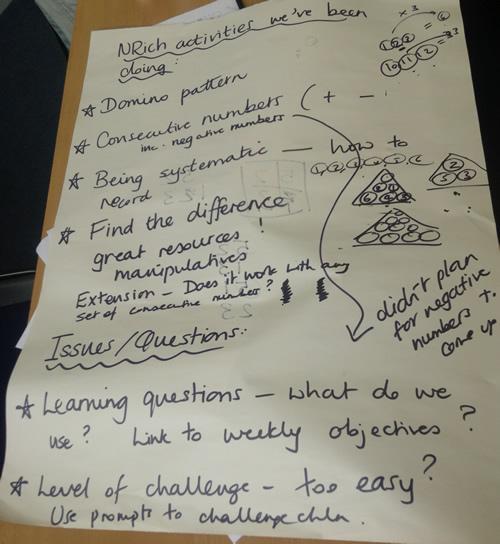 NRich activities we've been
doing:
× 3
1 2 3 = 6
10 11 12 = 33
☆ Domino pattern
☆ Consecutive numbers ( + -
inc. negative numbers
☆ Being systematic — how to
record
1, 2, 3, 4, 5, 6
☆ Find the difference
great resources !
manipulatives
Extension - Does it work with any
set of consecutive numbers?
2
5 3
didn't plan
for negative
numbers to
come up
Issues/Questions:
☆ Learning questions - what do we
use? Link to weekly objectives ?
☆ Level of challenge - too easy?
Use prompts to challenge chln.